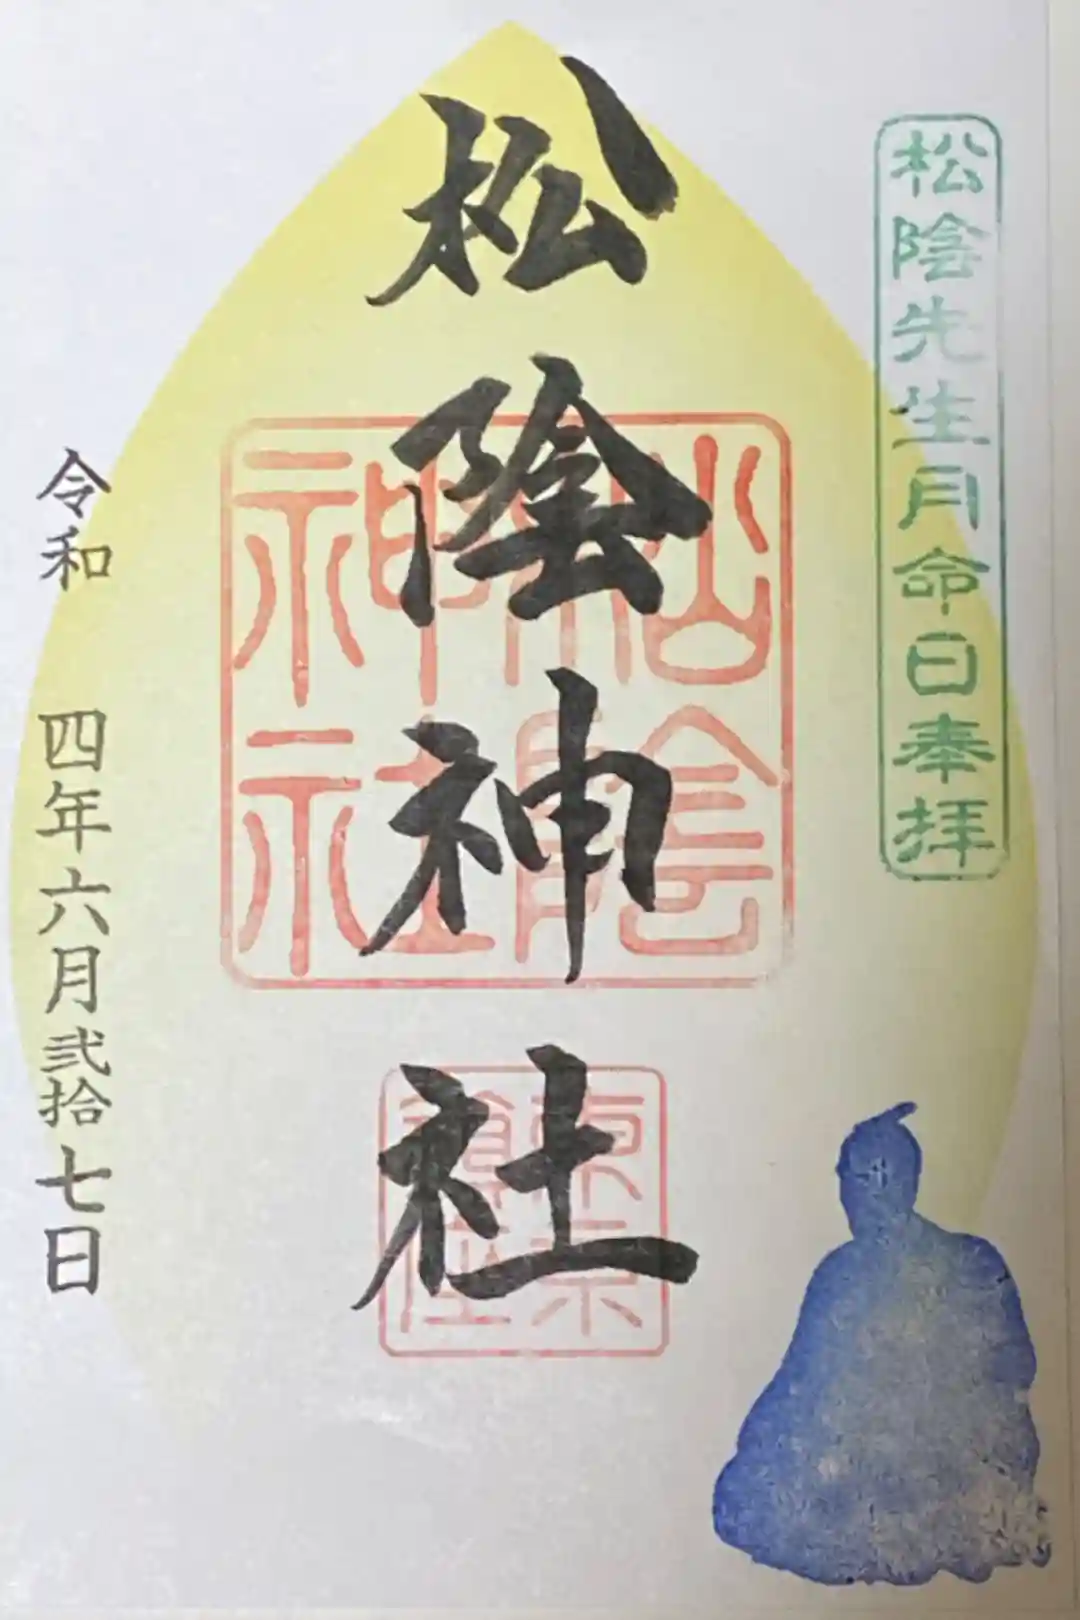 松陰先生月命日奉拝
松陰神社
松陰
神社
東京
令和 四年六月弐拾七日